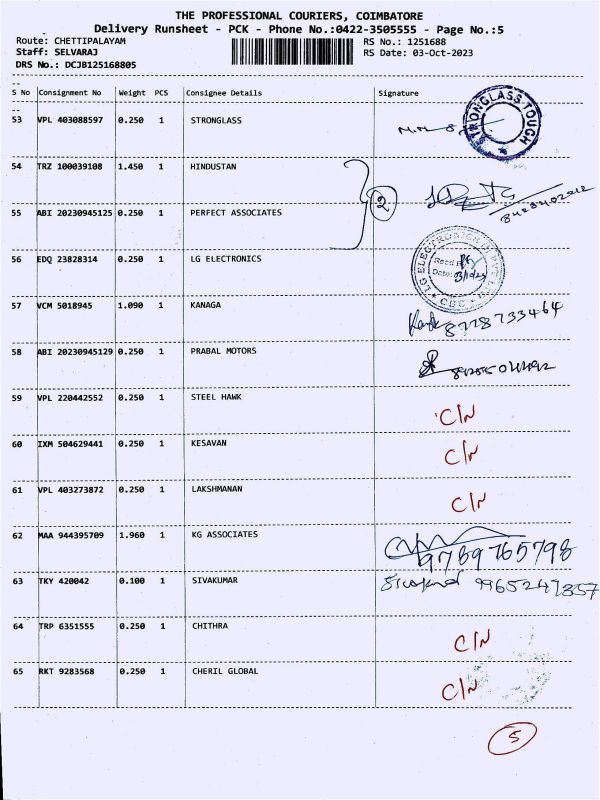 THE PROFESSIONAL COURIERS, COIMBATORE
Delivery Runsheet - PCK - Phone No.:0422-3505555 - Page No.:5
Route: CHETTIPALAYAM RS No.: 1251688
Staff: SELVARAJ RS Date: 03-Oct-2023
DRS No.: DCJB125168805
S No Consignment No Weight PCS Consignee Details Signature
53 VPL 403088597 0.250 1 STRONGLASS
STRONGLASS TOUGH
54 TRZ 100039108 1.450 1 HINDUSTAN
2
55 ABI 20230945125 0.250 1 PERFECT ASSOCIATES
56 EDQ 23828314 0.250 1 LG ELECTRONICS
LG ELECTRONICS
Date:
CBE
57 VCM 5018945 1.090 1 KANAGA
8778733464
58 ABI 20230945129 0.250 1 PRABAL MOTORS
59 VPL 220442552 0.250 1 STEEL HAWK C/N
60 IXM 504629441 0.250 1 KESAVAN C/N
61 VPL 403273872 0.250 1 LAKSHMANAN C/N
62 MAA 944395709 1.960 1 KG ASSOCIATES
9789765798
63 TKY 420042 0.100 1 SIVAKUMAR 9965247357
64 TRP 6351555 0.250 1 CHITHRA C/N
65 RKT 9283568 0.250 1 CHERIL GLOBAL C/N
5